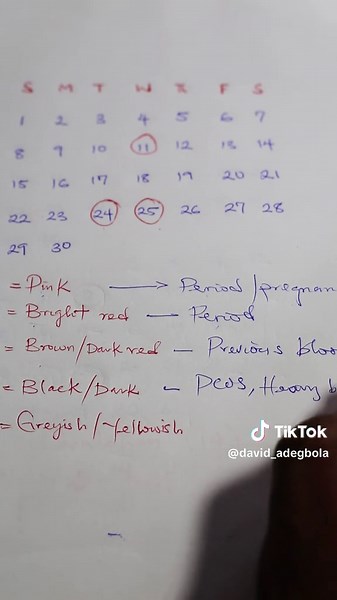 S M T W T F S
1 2 3 4 5 6 7
8 9 10 11 12 13 14
15 16 17 18 19 20 21
22 23 24 25 26 27 28
29 30
= Pink → Period/pregnan
= Bright red - Period
= Brown/Dark red - Previous bloo
= Black/Dark - PCOS, Heavy b
= Greyish/Yellowish
TikTok
@david_adegbola